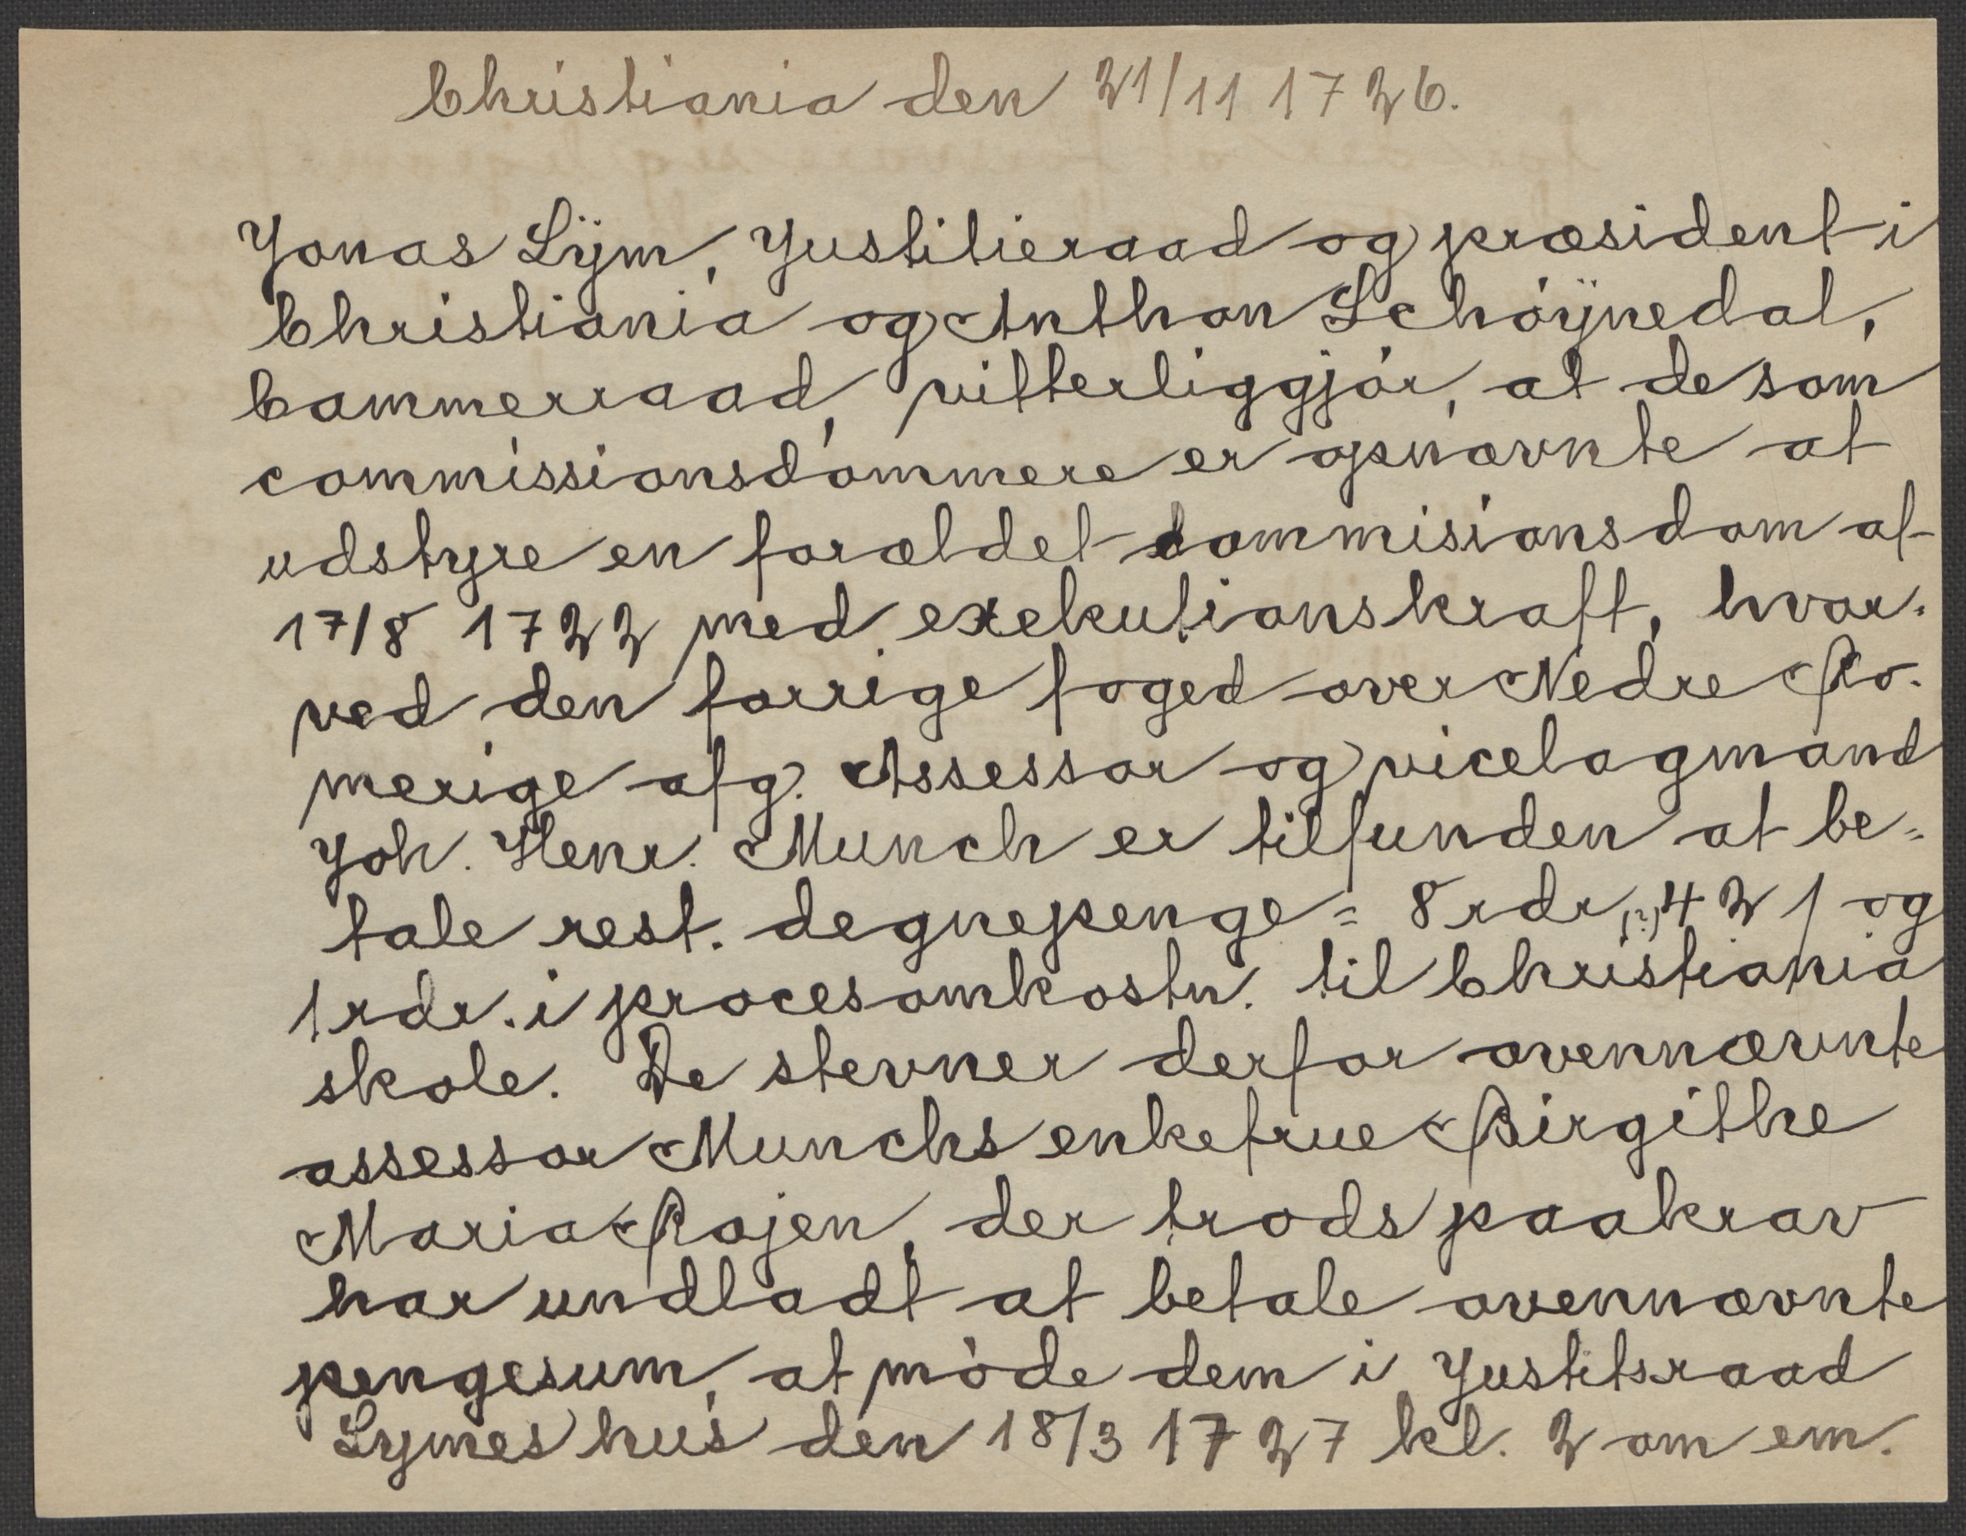 Christiania den 21/11 1726.
Jonas Lÿm, Justitieraad og præsident i
Christiania og Anthon Schöÿnedal,
Cammerraad, vitterliggjör, at de som
commissionsdommere er opnævnte at
udstyre en forældet commisionsdom af
17/8 1722 med exekutionskraft, hvor-
ved den forrige foged over Nedre Ro-
merige afg. Assessor og vicelagmand
Joh. Henr. Munch er tilfunden at be=
tale rest. degnepenge = 8 rdr, (?) 4 2 1 og
1 rdr. i procesomkostn. til Christiania
skole. De stevner derfor ovennævnte
assessor Munchs enkefrue Birgithe
Maria Rojen, der trods paakrav
har undladt at betale ovennævnte
pengesum, at möde dem i Justitsraad
Lymes hus den 18/3 1727 kl. 2 om em.